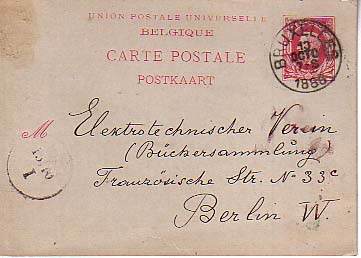 UNION POSTALE UNIVERSELLE
BELGIQUE
CARTE POSTALE
POSTKAART
BRUXELLES
13
OCTO
7-S
M Elektrotechnischer Verein
(Büchersammlung)
Französische Str. N 33c
Berlin W.